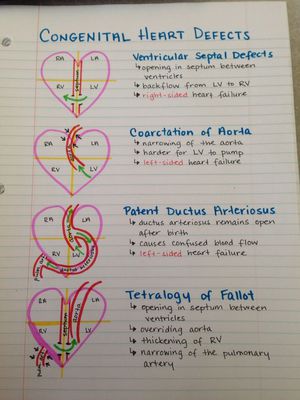 CONGENITAL HEART DEFECTS
RA LA
septum
RV LV
Ventricular Septal Defects
↳ opening in septum between
ventricles
↳ backflow from LV to RV
↳ right-sided heart failure
RA LA
RV LV
Coarctation of Aorta
↳ narrowing of the aorta
↳ harder for LV to pump
↳ left-sided heart failure
RA LA
RV LV
Patent Ductus Arteriosus
↳ ductus arteriosus remains open
after birth
↳ causes confused blood flow
↳ left-sided heart failure
RA LA
septum
aorta
RV LV
Tetralogy of Fallot
↳ opening in septum between
ventricles
↳ overriding aorta
↳ thickening of RV
↳ narrowing of the pulmonary
artery